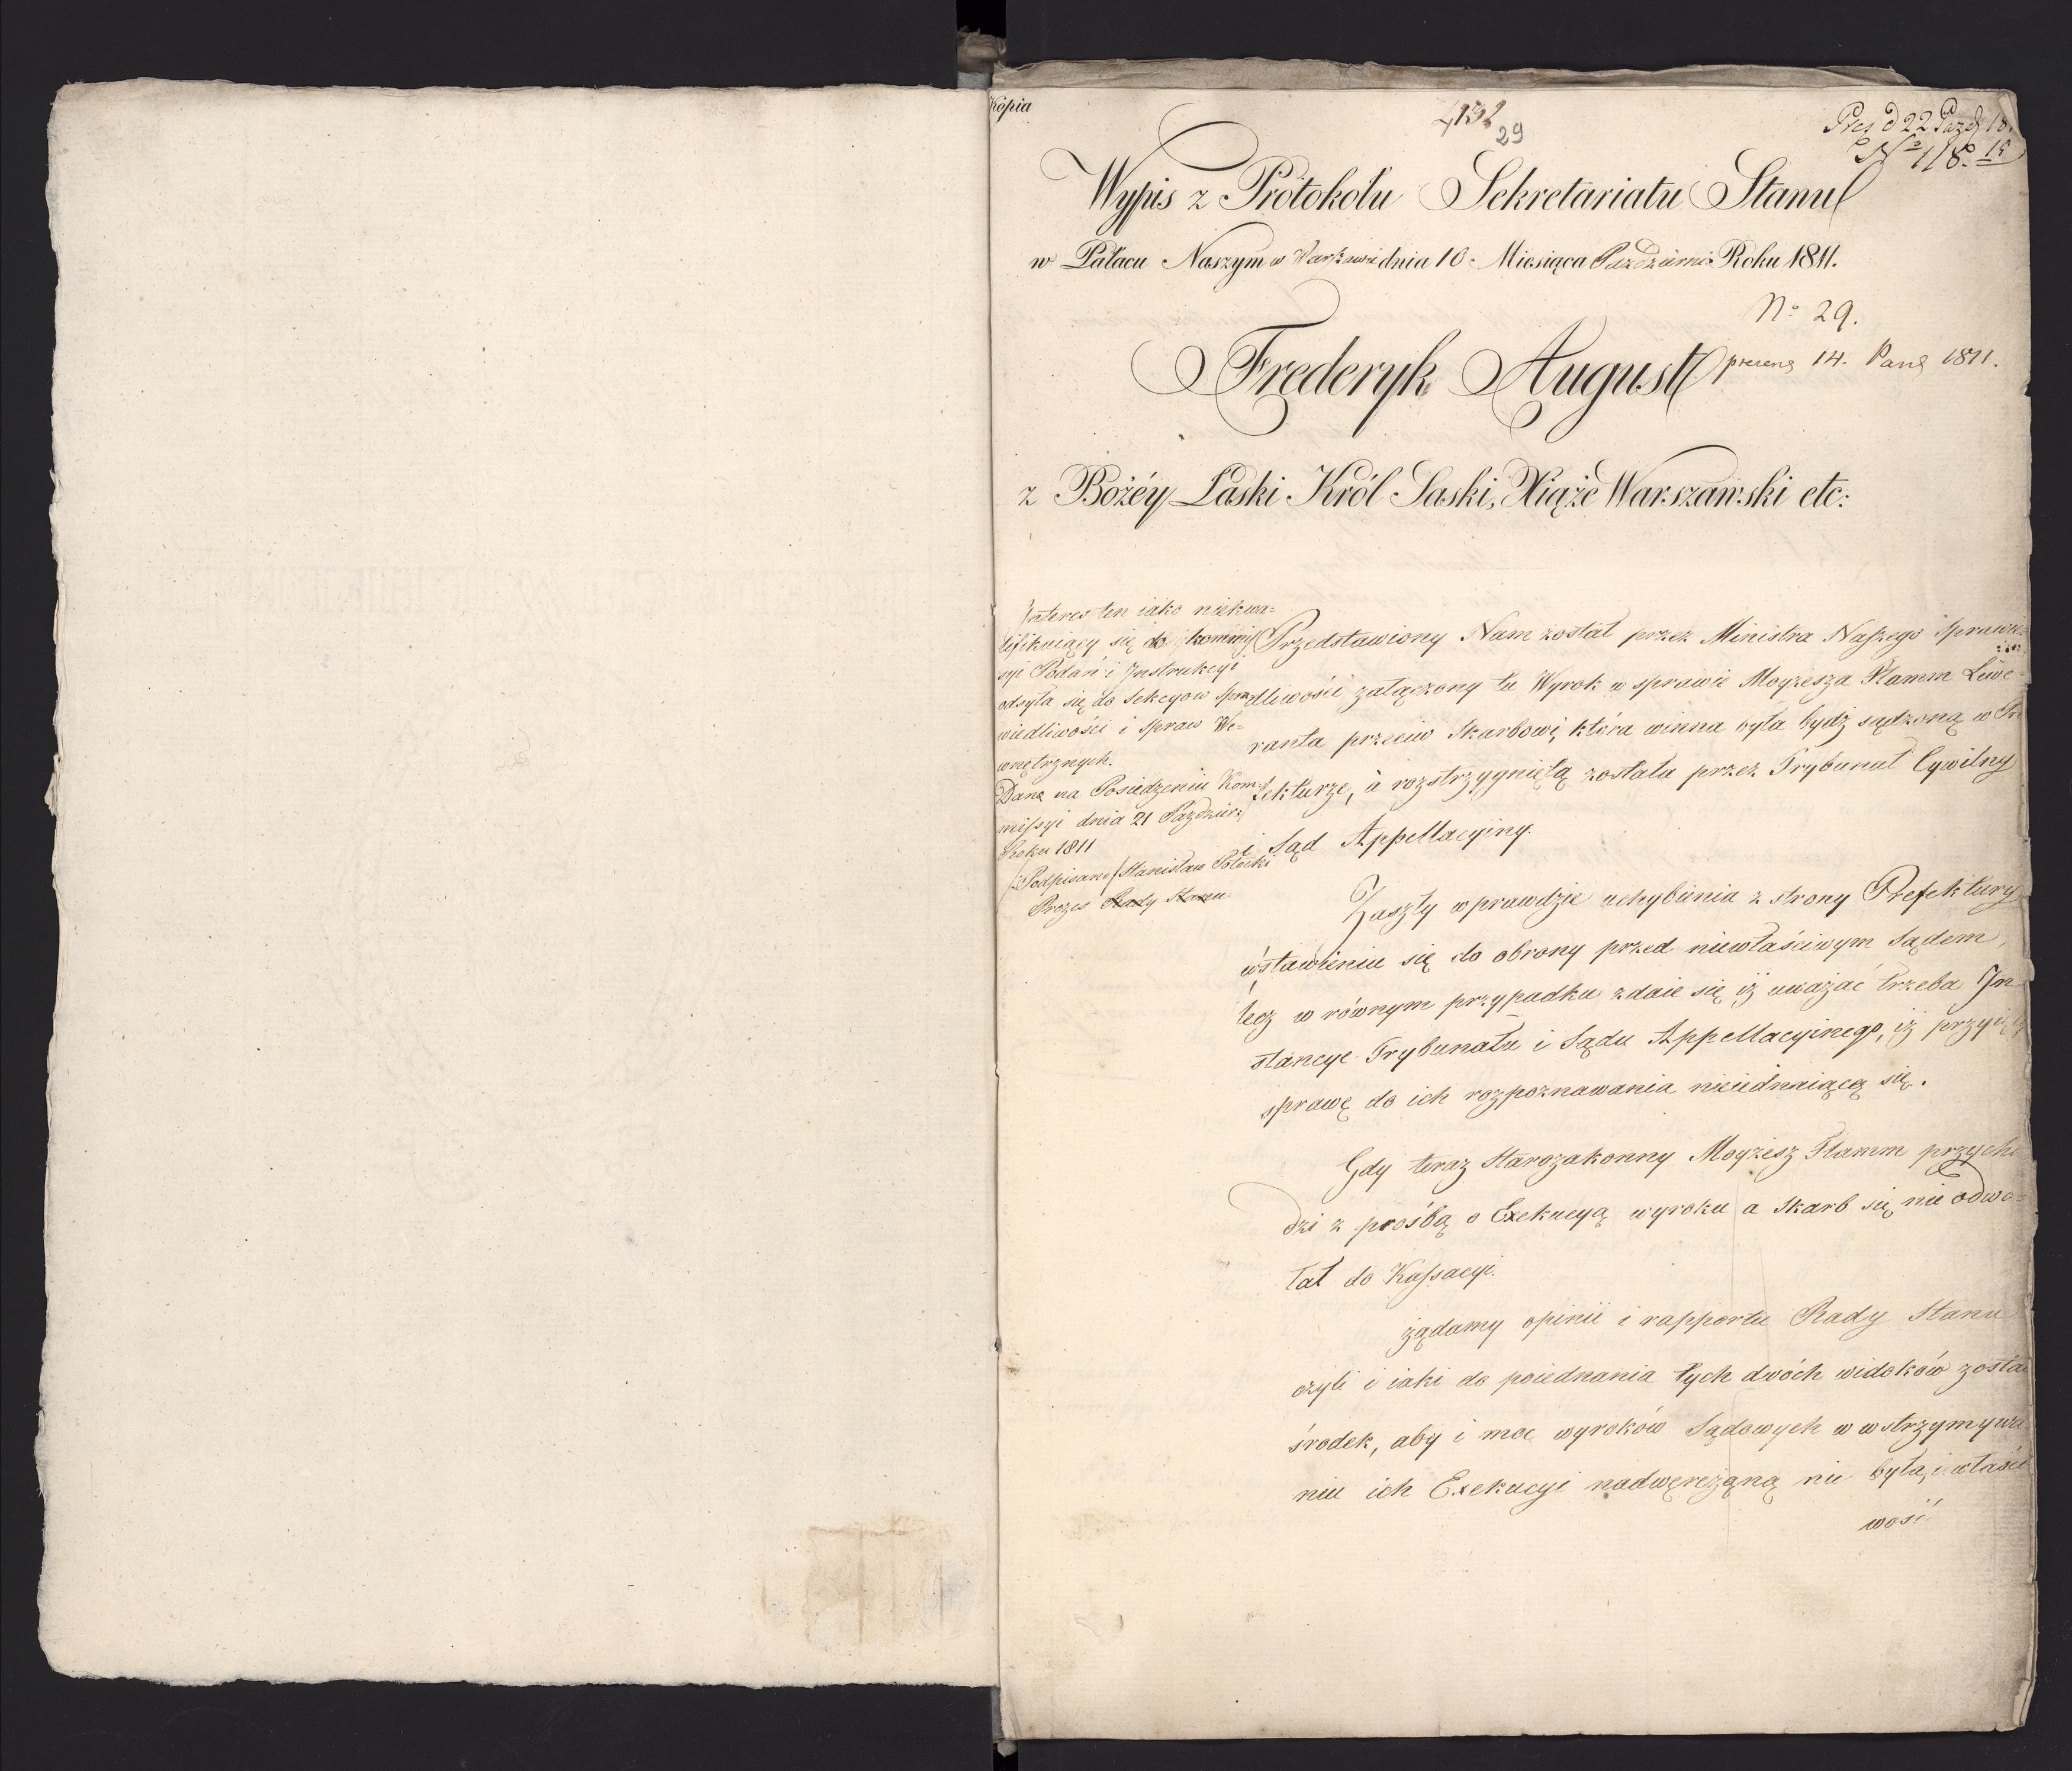 Kopia
29
Pres d 22 Paźd 18
No 118.
Wypis z Protokołu Sekretariatu Stanu
w Pałacu Naszym w Warszawie dnia 10 Miesiąca Październi: Roku 1811.
No 29.
Frederyk August
presens 14. 1811.
z Bożéy Łaski Król Saski, Xiąże Warszawski etc:
Interes ten iako niekwa=
lifikuiący się do kommis
syi Podań i Instrukcyi
odsyła się do Sekcyow Spra
wiedliwości i Spraw We-
wnętrznych.
Dane na Posiedzeniu Kom=
missyi dnia 21 Paździer:
Roku 1811
/:Podpisano/ Stanisław Potocki
Prezes Rady Stanu
Przedstawiony Nam został przez Ministra Naszego Sprawie=
dliwości załączony tu Wyrok w sprawie Moyżesza Flamm Liwe=
ranta przeciw Skarbowi, która winna była bydź sądzoną w Pre
fekturze, a rozstrzygniętą została przez Trybunał Cywilny
i Sąd Appellacyiny.
Zaszły wprawdzie uchybienia z strony Prefektury
w stawieniu się do obrony przed niewłaściwym Sądem,
lecz w równym przypadku zdaie się iż uważać trzeba In
stancye Trybunału i Sądu Appellacyinego, iż przyięły
sprawę do ich rozpoznawania nieiednaiącą się.
Gdy teraz Starozakonny Moyżesz Flamm przycho
dzi z prośbą o Exekucyą wyroku a Skarb się nie odwo=
łał do Kassacyi.
żądamy opinii i rapportu Rady Stanu
czyli i iaki do poiednania tych dwóch widoków zosta
środek, aby i moc wyroków Sądowych w wstrzymywa
niu ich Exekucyi nadwerężaną nie była, i właści
wość